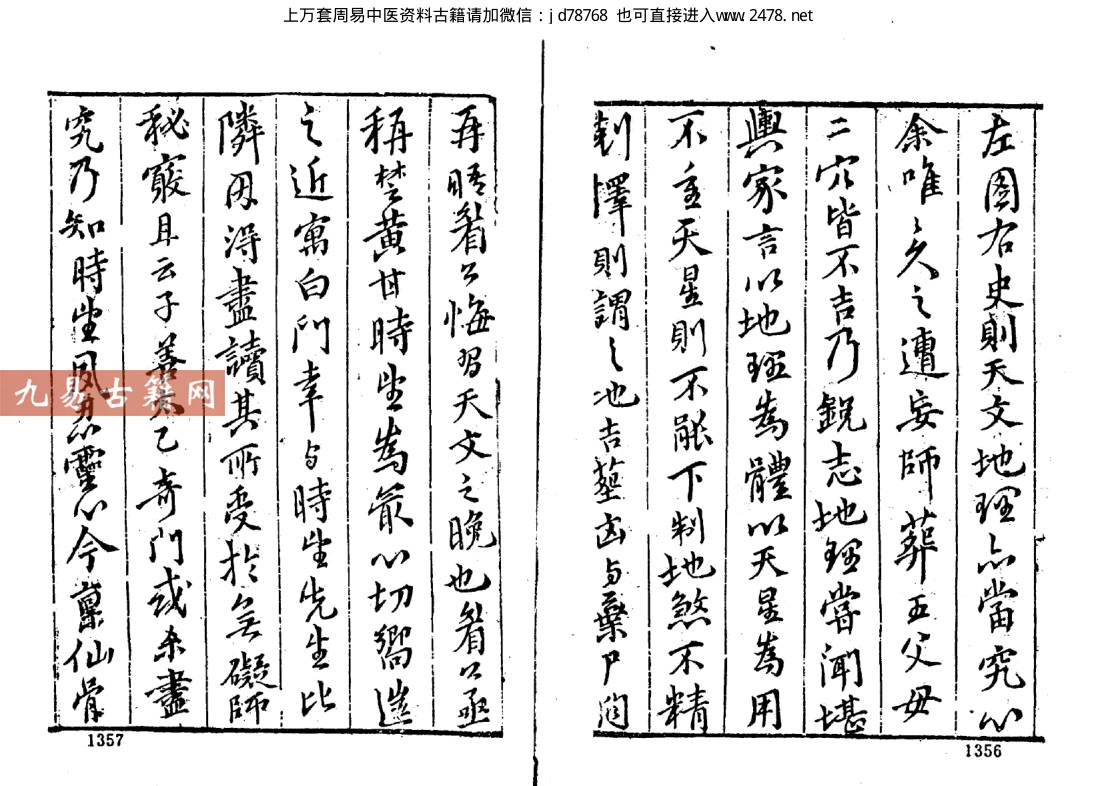 上万套周易中医资料古籍请加微信：jd78768 也可直接进入www.2478.net
左圖右史則天文地理亦當究心
余唯唯久之遭妄師葬五父母
二穴皆不吉乃銳志地理嘗聞堪
輿家言以地理為體以天星為用
不重天星則不能下制地煞不精
剋擇則謂之地吉葬凶与棄尸同
1356
再晤着公悔習天文之晚也着公亟
稱楚黃甘時望為最心切嚮
之近寓白門幸与時望先生比
隣因得盡讀其所受於無礙師
秘竅且云子善太乙奇門或未盡
究乃知時望夙慧靈心今稟仙骨
1357
九易古籍网